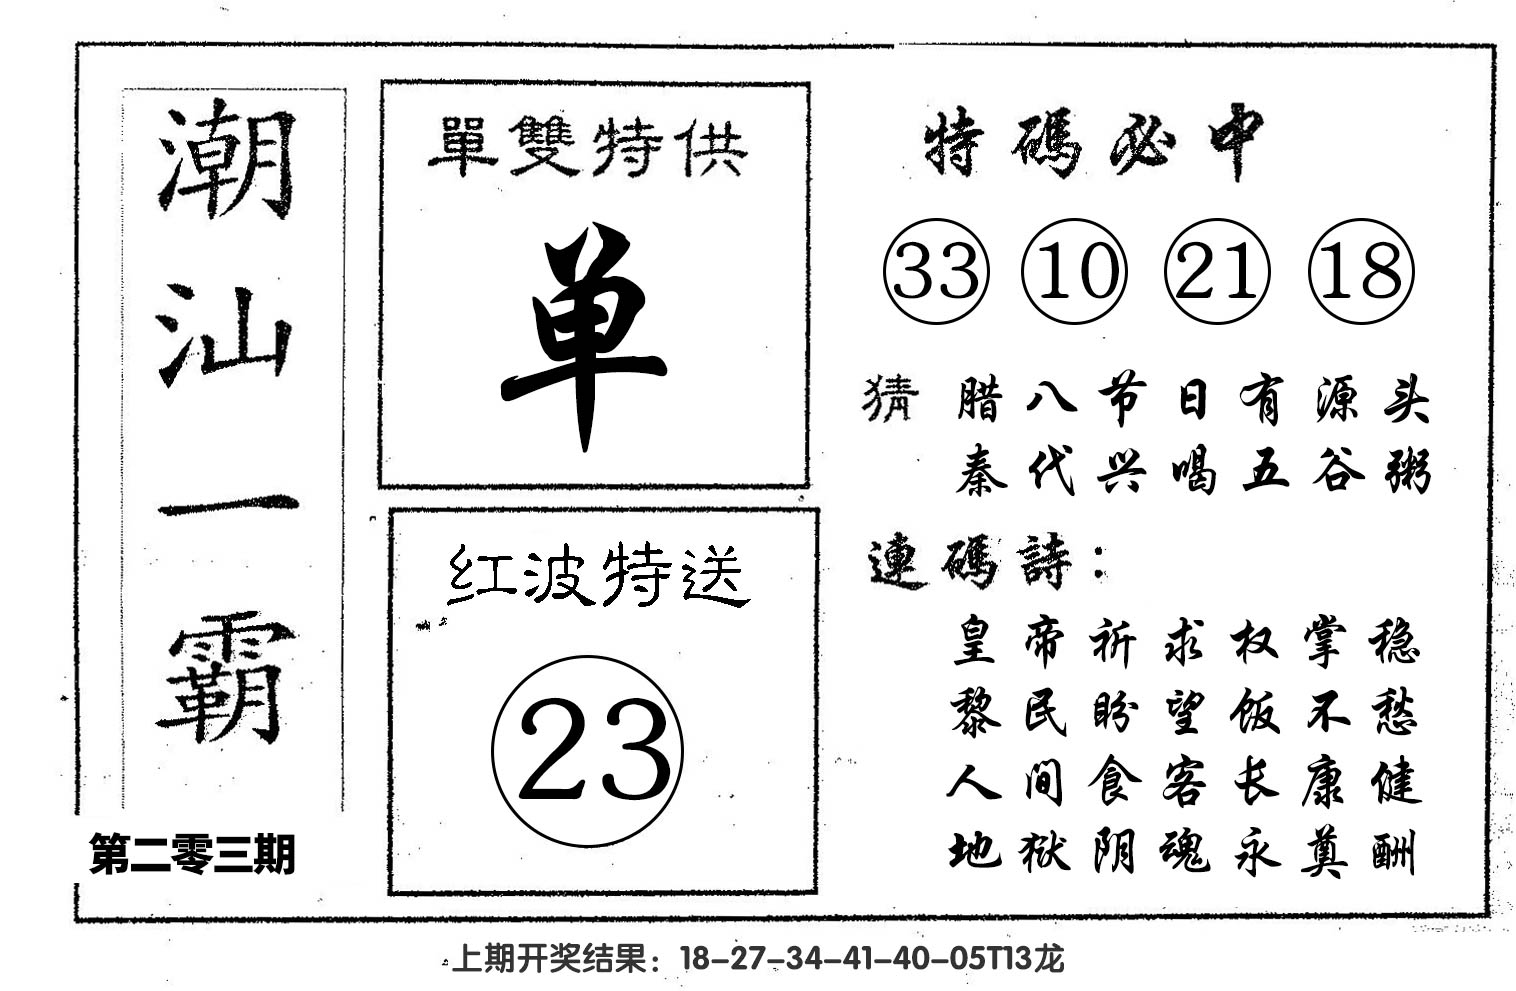 潮汕一霸
第二零三期
單雙特供
单
红波特送
23
特碼必中
33 10 21 18
猜 腊八节日有源头
秦代兴喝五谷粥
連碼詩：
皇帝祈求权掌稳
黎民盼望饭不愁
人间食客长康健
地狱阴魂永奠酬
上期开奖结果：18-27-34-41-40-05T13龙